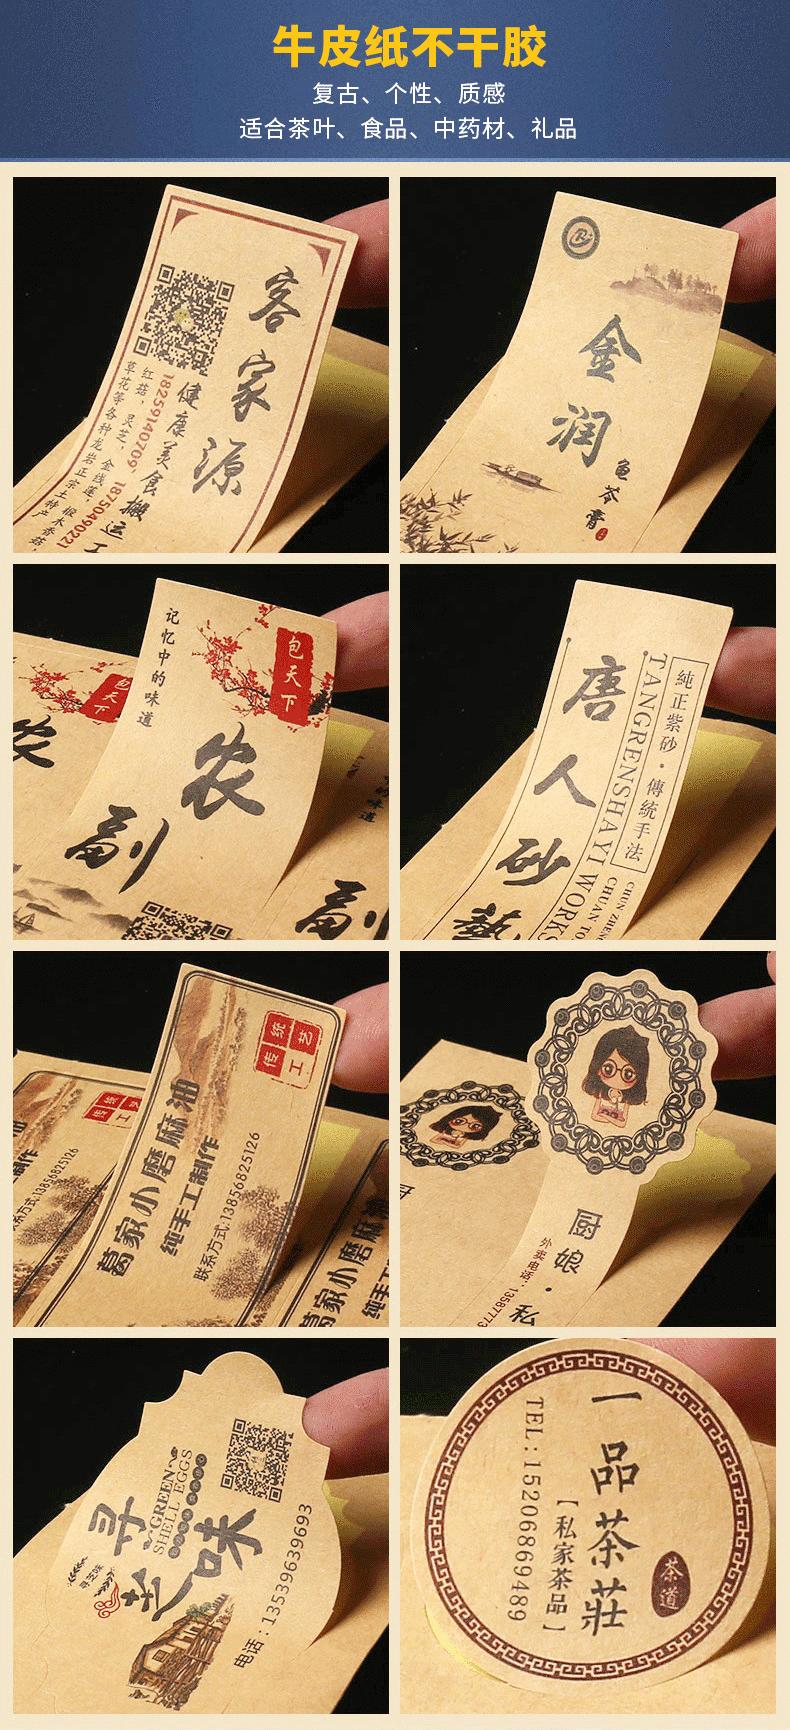 牛皮纸不干胶
复古、个性、质感
适合茶叶、食品、中药材、礼品
客家源
健康美食搬运工
18259140709 1875049022
红菇，灵芝，金线莲，椴木香菇，
草花等各种龙岩正宗土特产
金润
龟苓膏
记忆中的味道
包天下
农副
包天下
农
副
的味道
唐人砂藝
純正紫砂·傳統手法
TANGRENSHAYI WORKS
CHUN ZHEN
CHUAN TO
传统工艺
葛家小磨麻油
纯手工制作
联系方式:13856825126
传统工
油
制作
联系方式:13856825126
葛家小磨麻油
纯手工
厨娘·私
外卖电话:13587773
厨
寻味
GREEN
SHELL EGGS
电话:13539639693
一品茶莊
【私家茶品】
TEL:15206869489
茶道